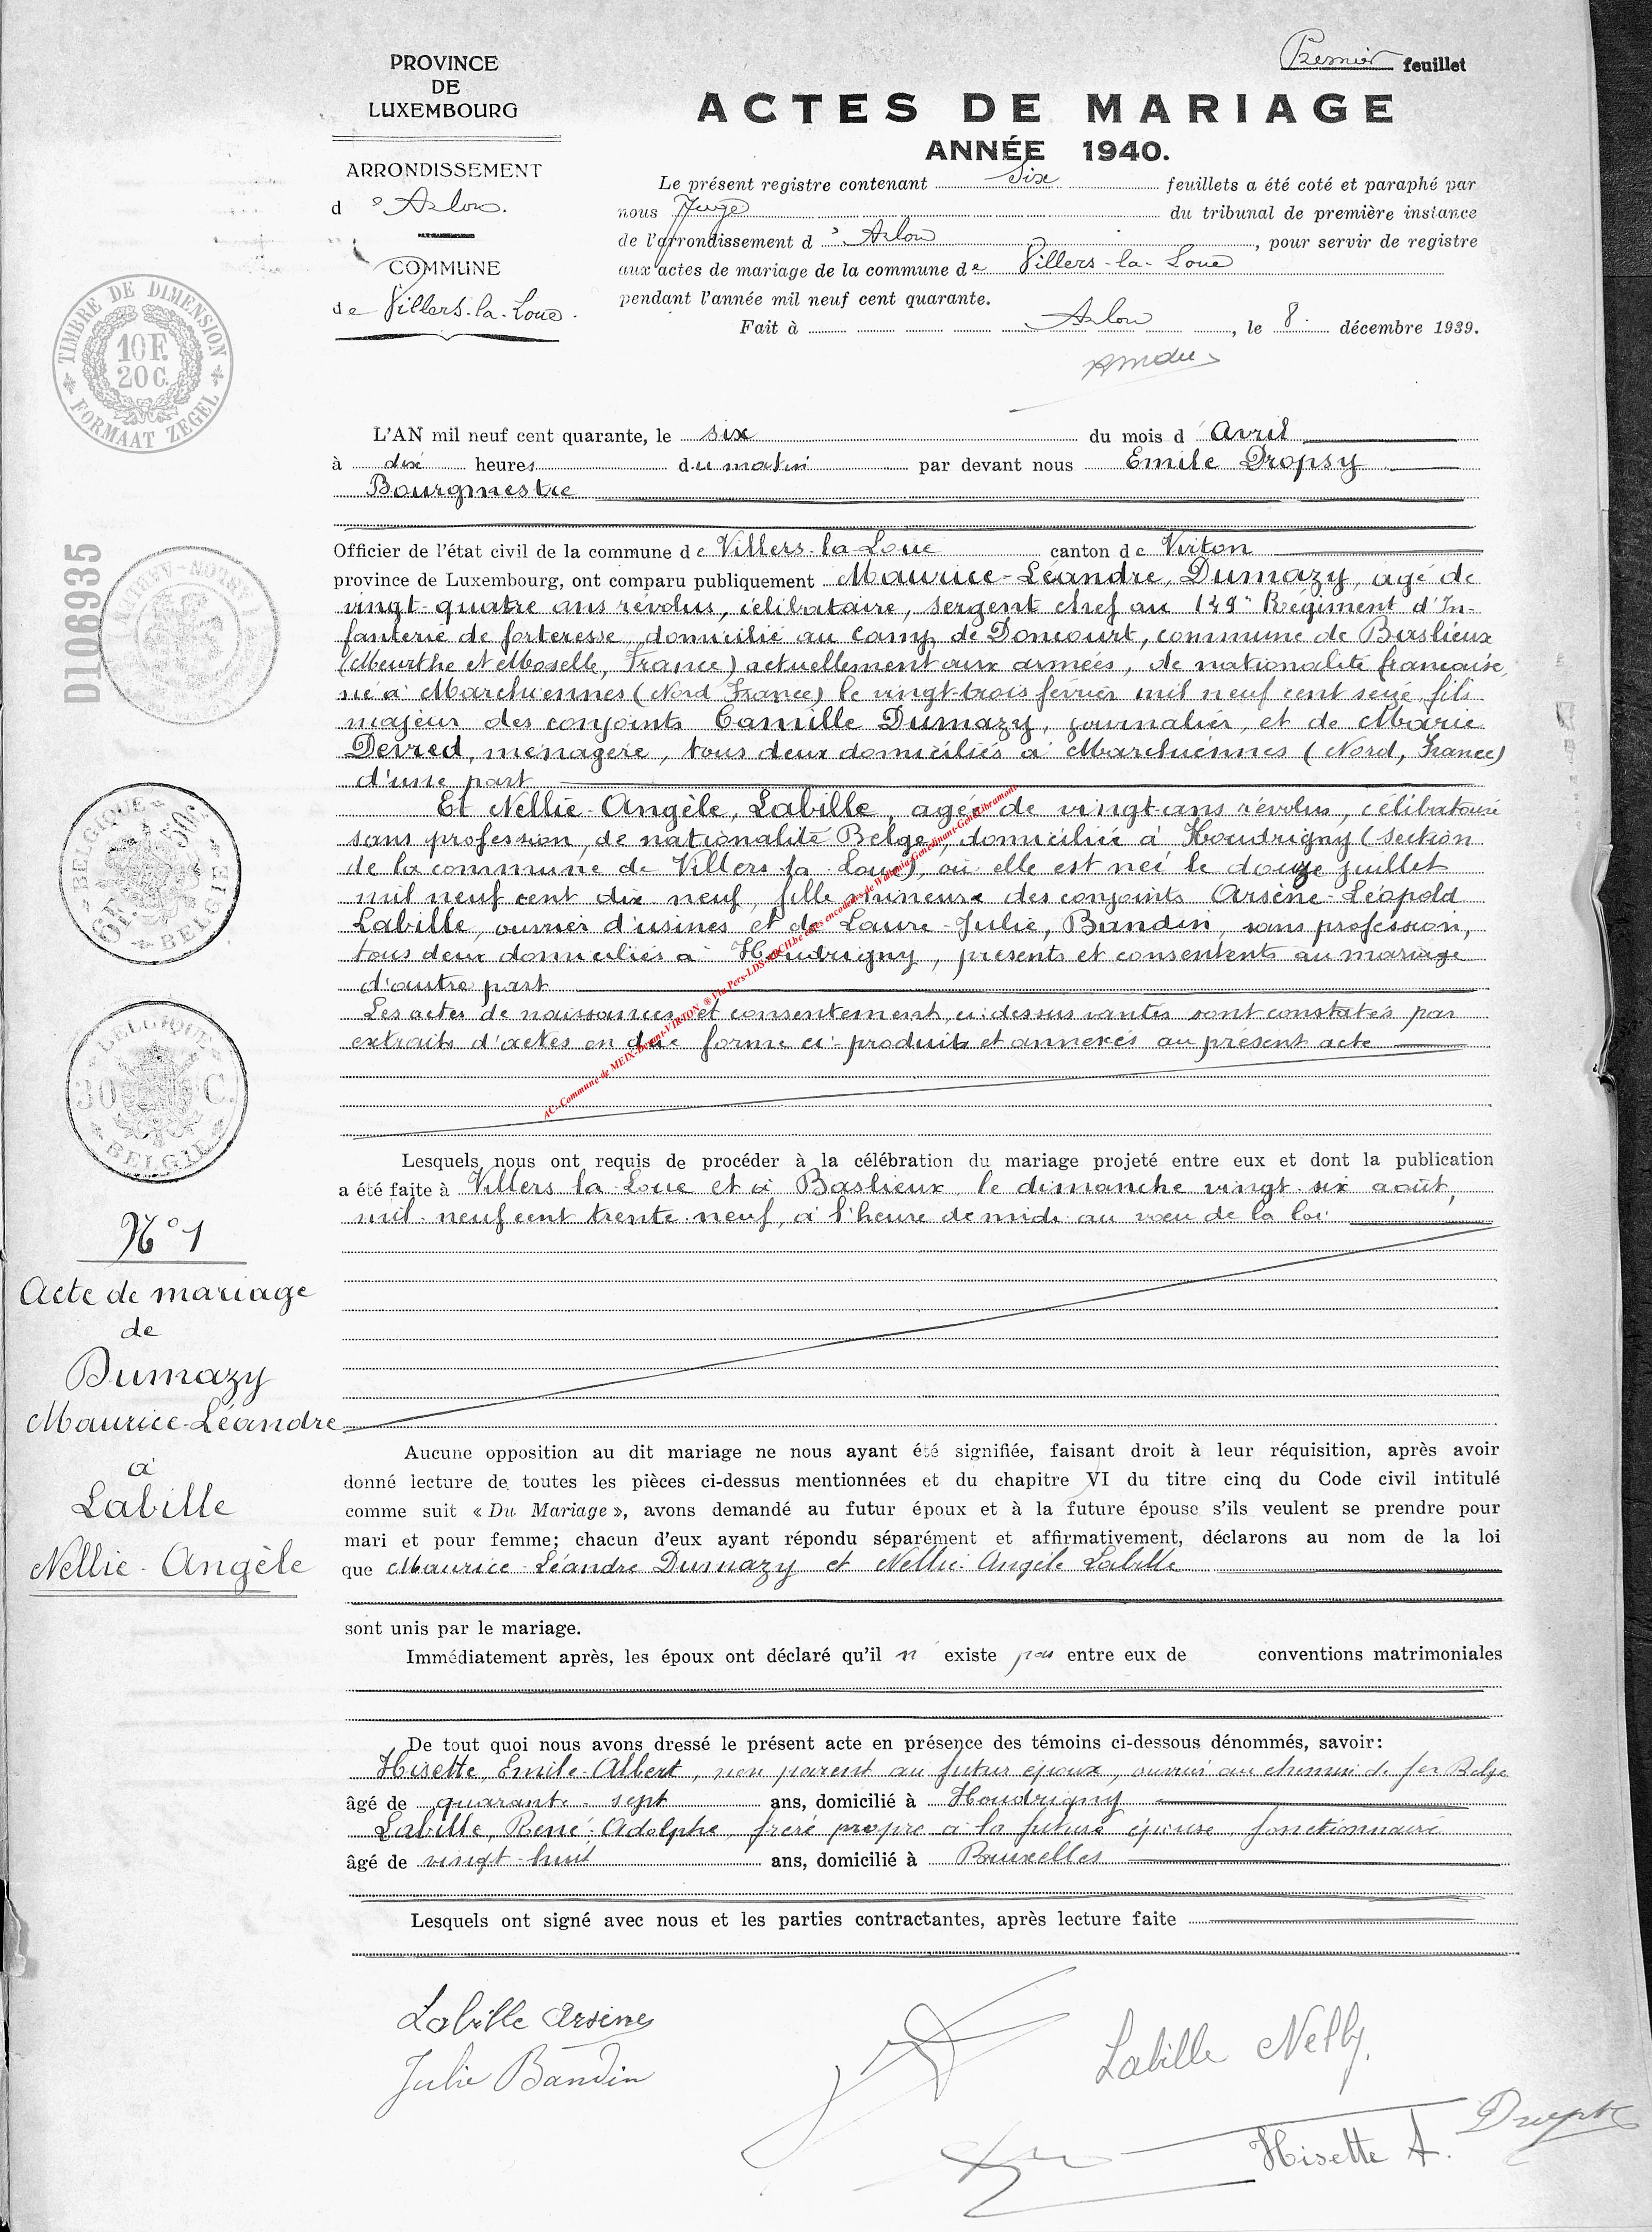 Premier feuillet
PROVINCE
DE
LUXEMBOURG
ARRONDISSEMENT
d'Arlon.
COMMUNE
de Villers-la-Loue.
ACTES DE MARIAGE
ANNÉE 1940.
Le présent registre contenant Six feuillets a été coté et paraphé par
nous Juge du tribunal de première instance
de l'arrondissement d'Arlon, pour servir de registre
aux actes de mariage de la commune de Villers-la-Loue
pendant l'année mil neuf cent quarante.
Fait à Arlon, le 8. décembre 1939.
TIMBRE DE DIMENSION
10 F.
20 C.
FORMAAT ZEGEL
L'AN mil neuf cent quarante, le six du mois d'Avril
à dix heures du matin par devant nous Emile Dropsy
Bourgmestre
Officier de l'état civil de la commune de Villers-la-Loue canton de Virton
province de Luxembourg, ont comparu publiquement Maurice-Léandre, Dumazy, agé de
vingt-quatre ans révolus, célibataire, sergent chef au 149e Régiment d'In-
fanterie de forteresse, domicilié au Camp de Doncourt, commune de Baslieux
(Meurthe et Moselle, France) actuellement aux armées, de nationalité française,
né à Marchiennes (Nord France) le vingt-trois février mil neuf cent seize, fils
majeur des conjoints Camille Dumazy, journalier, et de Marie
Devred, ménagère, tous deux domiciliés à Marchiennes (Nord, France)
d'une part
Et Nellie-Angèle, Labille, agée de vingt-ans révolus, célibataire
sans profession, de nationalité Belge, domiciliée à Houdrigny (section
de la commune de Villers-la-Loue), où elle est née le douze juillet
mil neuf cent dix neuf, fille mineure des conjoints Arsène-Léopold
Labille, ouvrier d'usines et de Laure-Julie, Bandin, sans profession,
tous deux domiciliés à Houdrigny, présents et consentents au mariage
d'autre part
Les actes de naissances et consentement, ci-dessus vantés sont constatés par
extraits d'actes en due forme ci-produits et annexés au présent acte
AC-Commune de MEIX-Devant-VIRTON
D1069935
BELGIQUE
6F. 50c.
BELGIE
BELGIQUE
30 C.
BELGIE
Lesquels nous ont requis de procéder à la célébration du mariage projeté entre eux et dont la publication
a été faite à Villers la Loue et à Baslieux, le dimanche vingt-six août,
mil-neuf cent trente-neuf, à l'heure de midi au vœu de la loi
N° 1
Acte de mariage
de
Dumazy
Maurice-Léandre
à
Labille
Nellie-Angèle
Aucune opposition au dit mariage ne nous ayant été signifiée, faisant droit à leur réquisition, après avoir
donné lecture de toutes les pièces ci-dessus mentionnées et du chapitre VI du titre cinq du Code civil intitulé
comme suit « Du Mariage », avons demandé au futur époux et à la future épouse s'ils veulent se prendre pour
mari et pour femme; chacun d'eux ayant répondu séparément et affirmativement, déclarons au nom de la loi
que Maurice-Léandre Dumazy et Nellie-Angèle Labille
sont unis par le mariage.
Immédiatement après, les époux ont déclaré qu'il n'existe pas entre eux de conventions matrimoniales
De tout quoi nous avons dressé le présent acte en présence des témoins ci-dessous dénommés, savoir:
Hisette, Emile-Albert, non parent au futur époux, ouvrier au chemin de fer Belge
âgé de quarante-sept ans, domicilié à Houdrigny
Labille, René-Adolphe, frère propre à la future épouse, fonctionnaire
âgé de vingt-huit ans, domicilié à Bruxelles
Lesquels ont signé avec nous et les parties contractantes, après lecture faite
Labille Arsène
Julie Bandin
Labille Nelly.
Hisette A.